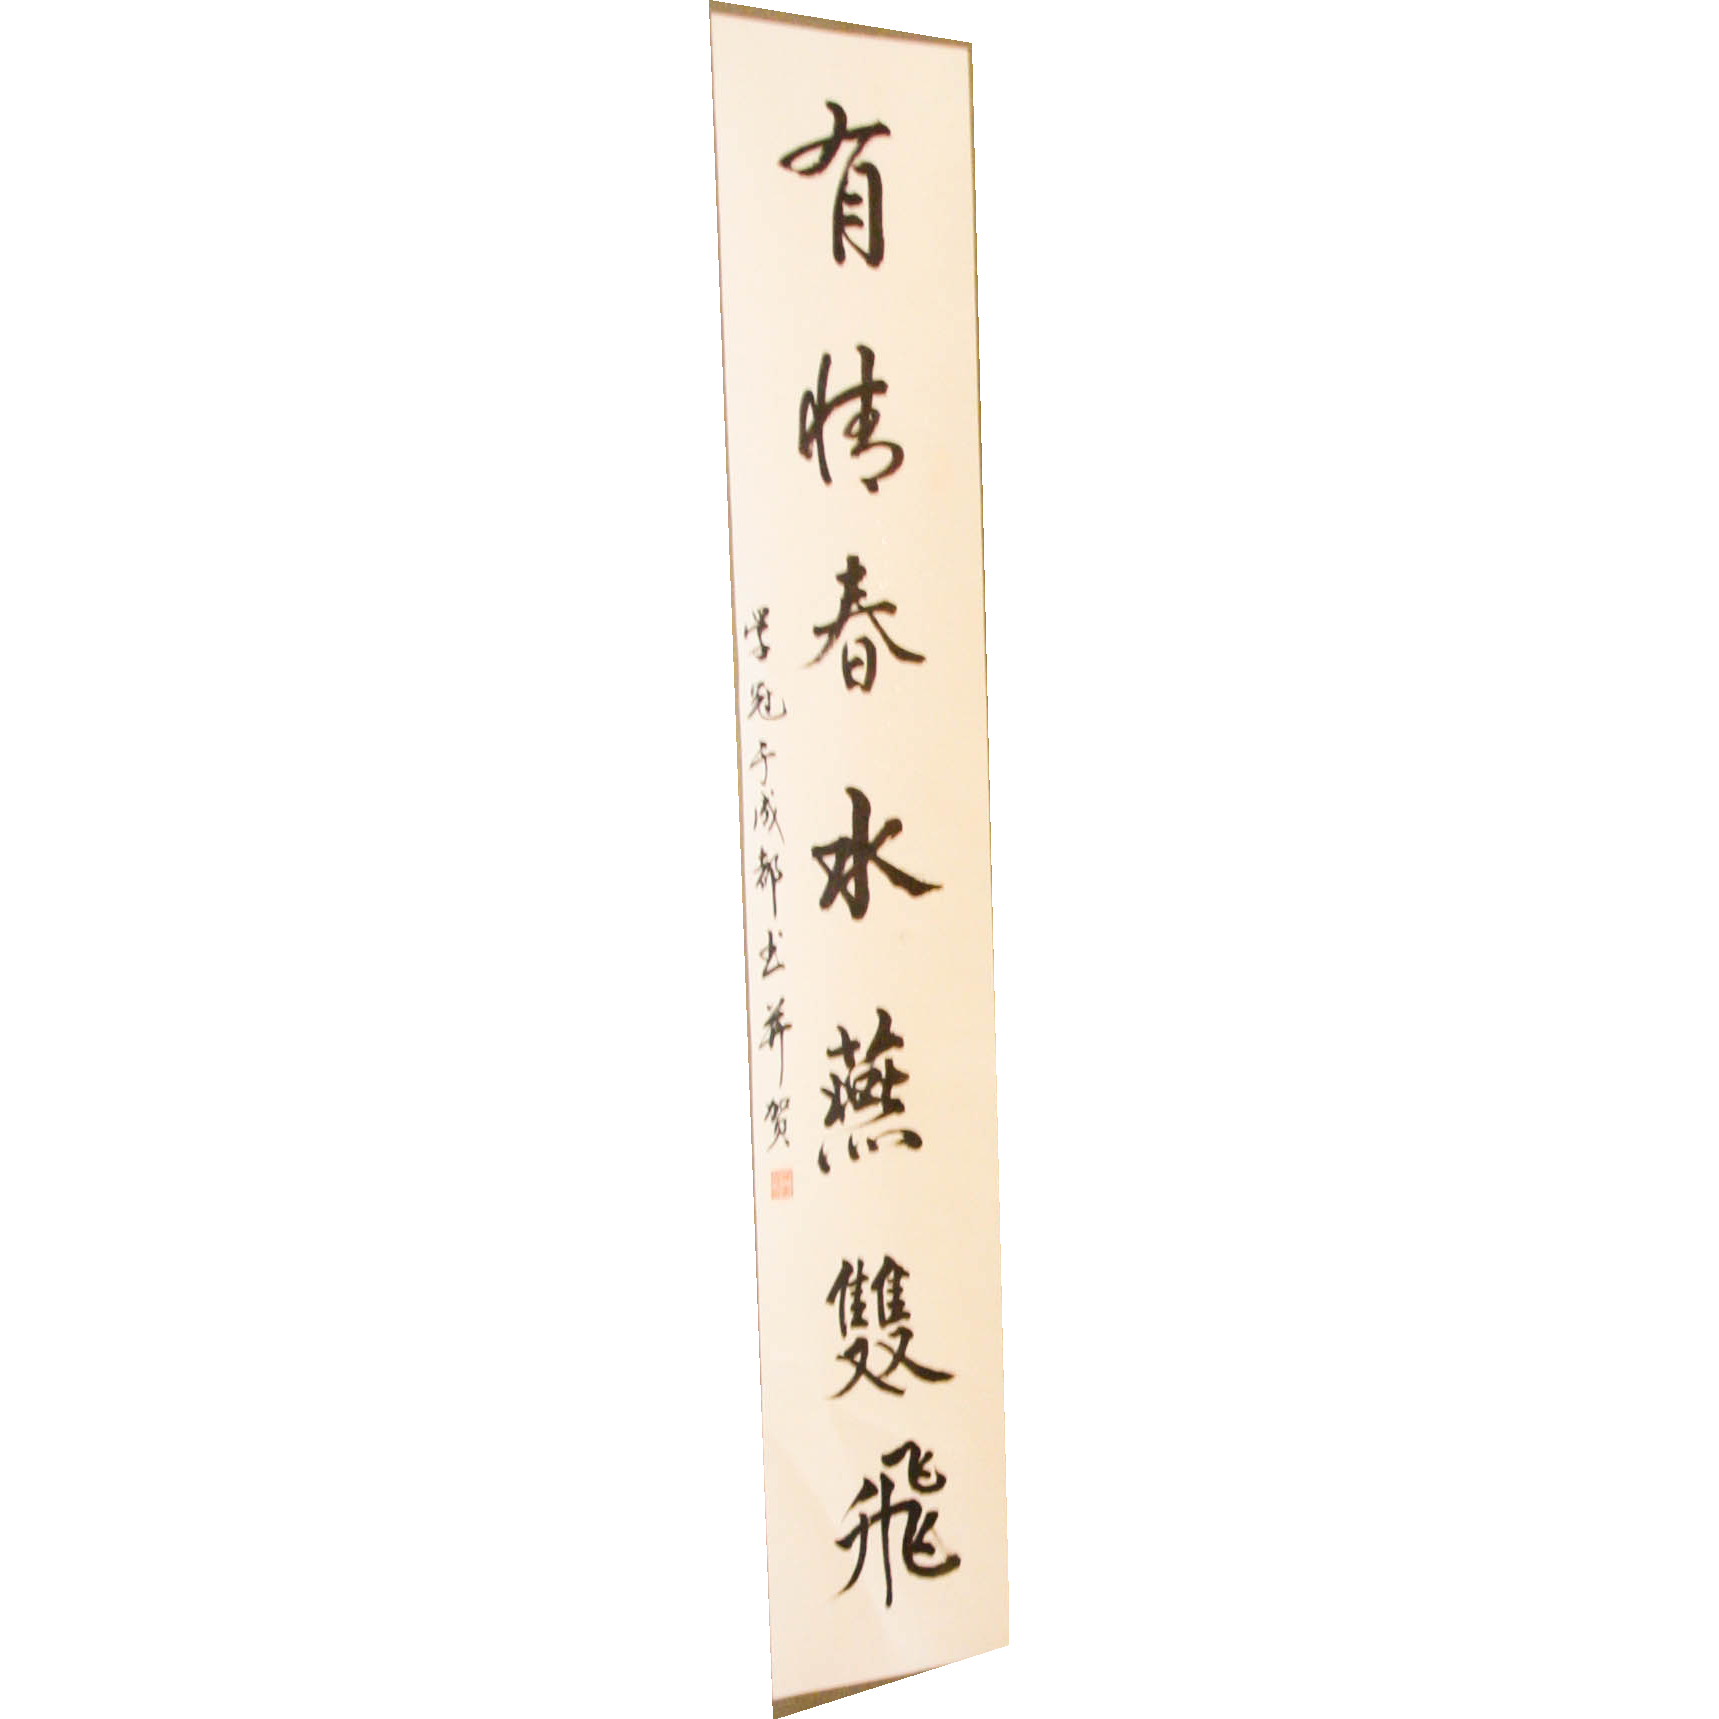 有情春水燕雙飛
学冠于成都书并贺